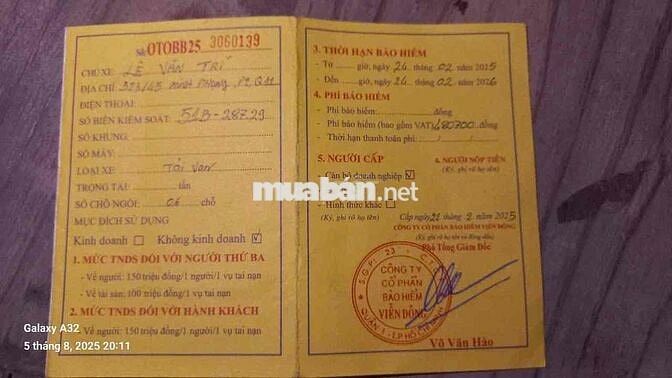 Số OTOBB25 3060139
CHỦ XE: LÊ VĂN TRÍ
ĐỊA CHỈ: 323/45 Minh Phụng, P2, Q11
ĐIỆN THOẠI:
SỐ BIỂN KIỂM SOÁT: 51B-287.29
SỐ KHUNG:
SỐ MÁY:
LOẠI XE: Tải Van
TRỌNG TẢI: tấn
SỐ CHỖ NGỒI: 06 chỗ
MỤC ĐÍCH SỬ DỤNG
Kinh doanh Không kinh doanh
1. MỨC TNDS ĐỐI VỚI NGƯỜI THỨ BA
- Về người: 150 triệu đồng/1 người/1 vụ tai nạn
- Về tài sản: 100 triệu đồng/1 vụ tai nạn
2. MỨC TNDS ĐỐI VỚI HÀNH KHÁCH
- Về người: 150 triệu đồng/1 người/1 vụ tai nạn
3. THỜI HẠN BẢO HIỂM
- Từ giờ, ngày 24 tháng 02 năm 2025
- Đến giờ, ngày 24 tháng 02 năm 2026
4. PHÍ BẢO HIỂM
- Phí bảo hiểm: đồng
- Phí bảo hiểm (bao gồm VAT) 480700 đồng
- Thời hạn thanh toán phí:
5. NGƯỜI CẤP
6. NGƯỜI NỘP TIỀN
- Cán bộ doanh nghiệp
(Ký, ghi rõ họ tên)
- Hình thức khác
(Ký, ghi rõ họ tên)
Cấp ngày 21 tháng 2 năm 2025
CÔNG TY CỔ PHẦN BẢO HIỂM VIỄN ĐÔNG
(Ký, ghi rõ họ tên và đóng dấu)
Phó Tổng Giám Đốc
CÔNG TY
CỔ PHẦN
BẢO HIỂM
VIỄN ĐÔNG
QUẬN 1 - T.P HỒ CHÍ MINH
Võ Văn Hào
muaban.net
Galaxy A32
5 tháng 8, 2025 20:11